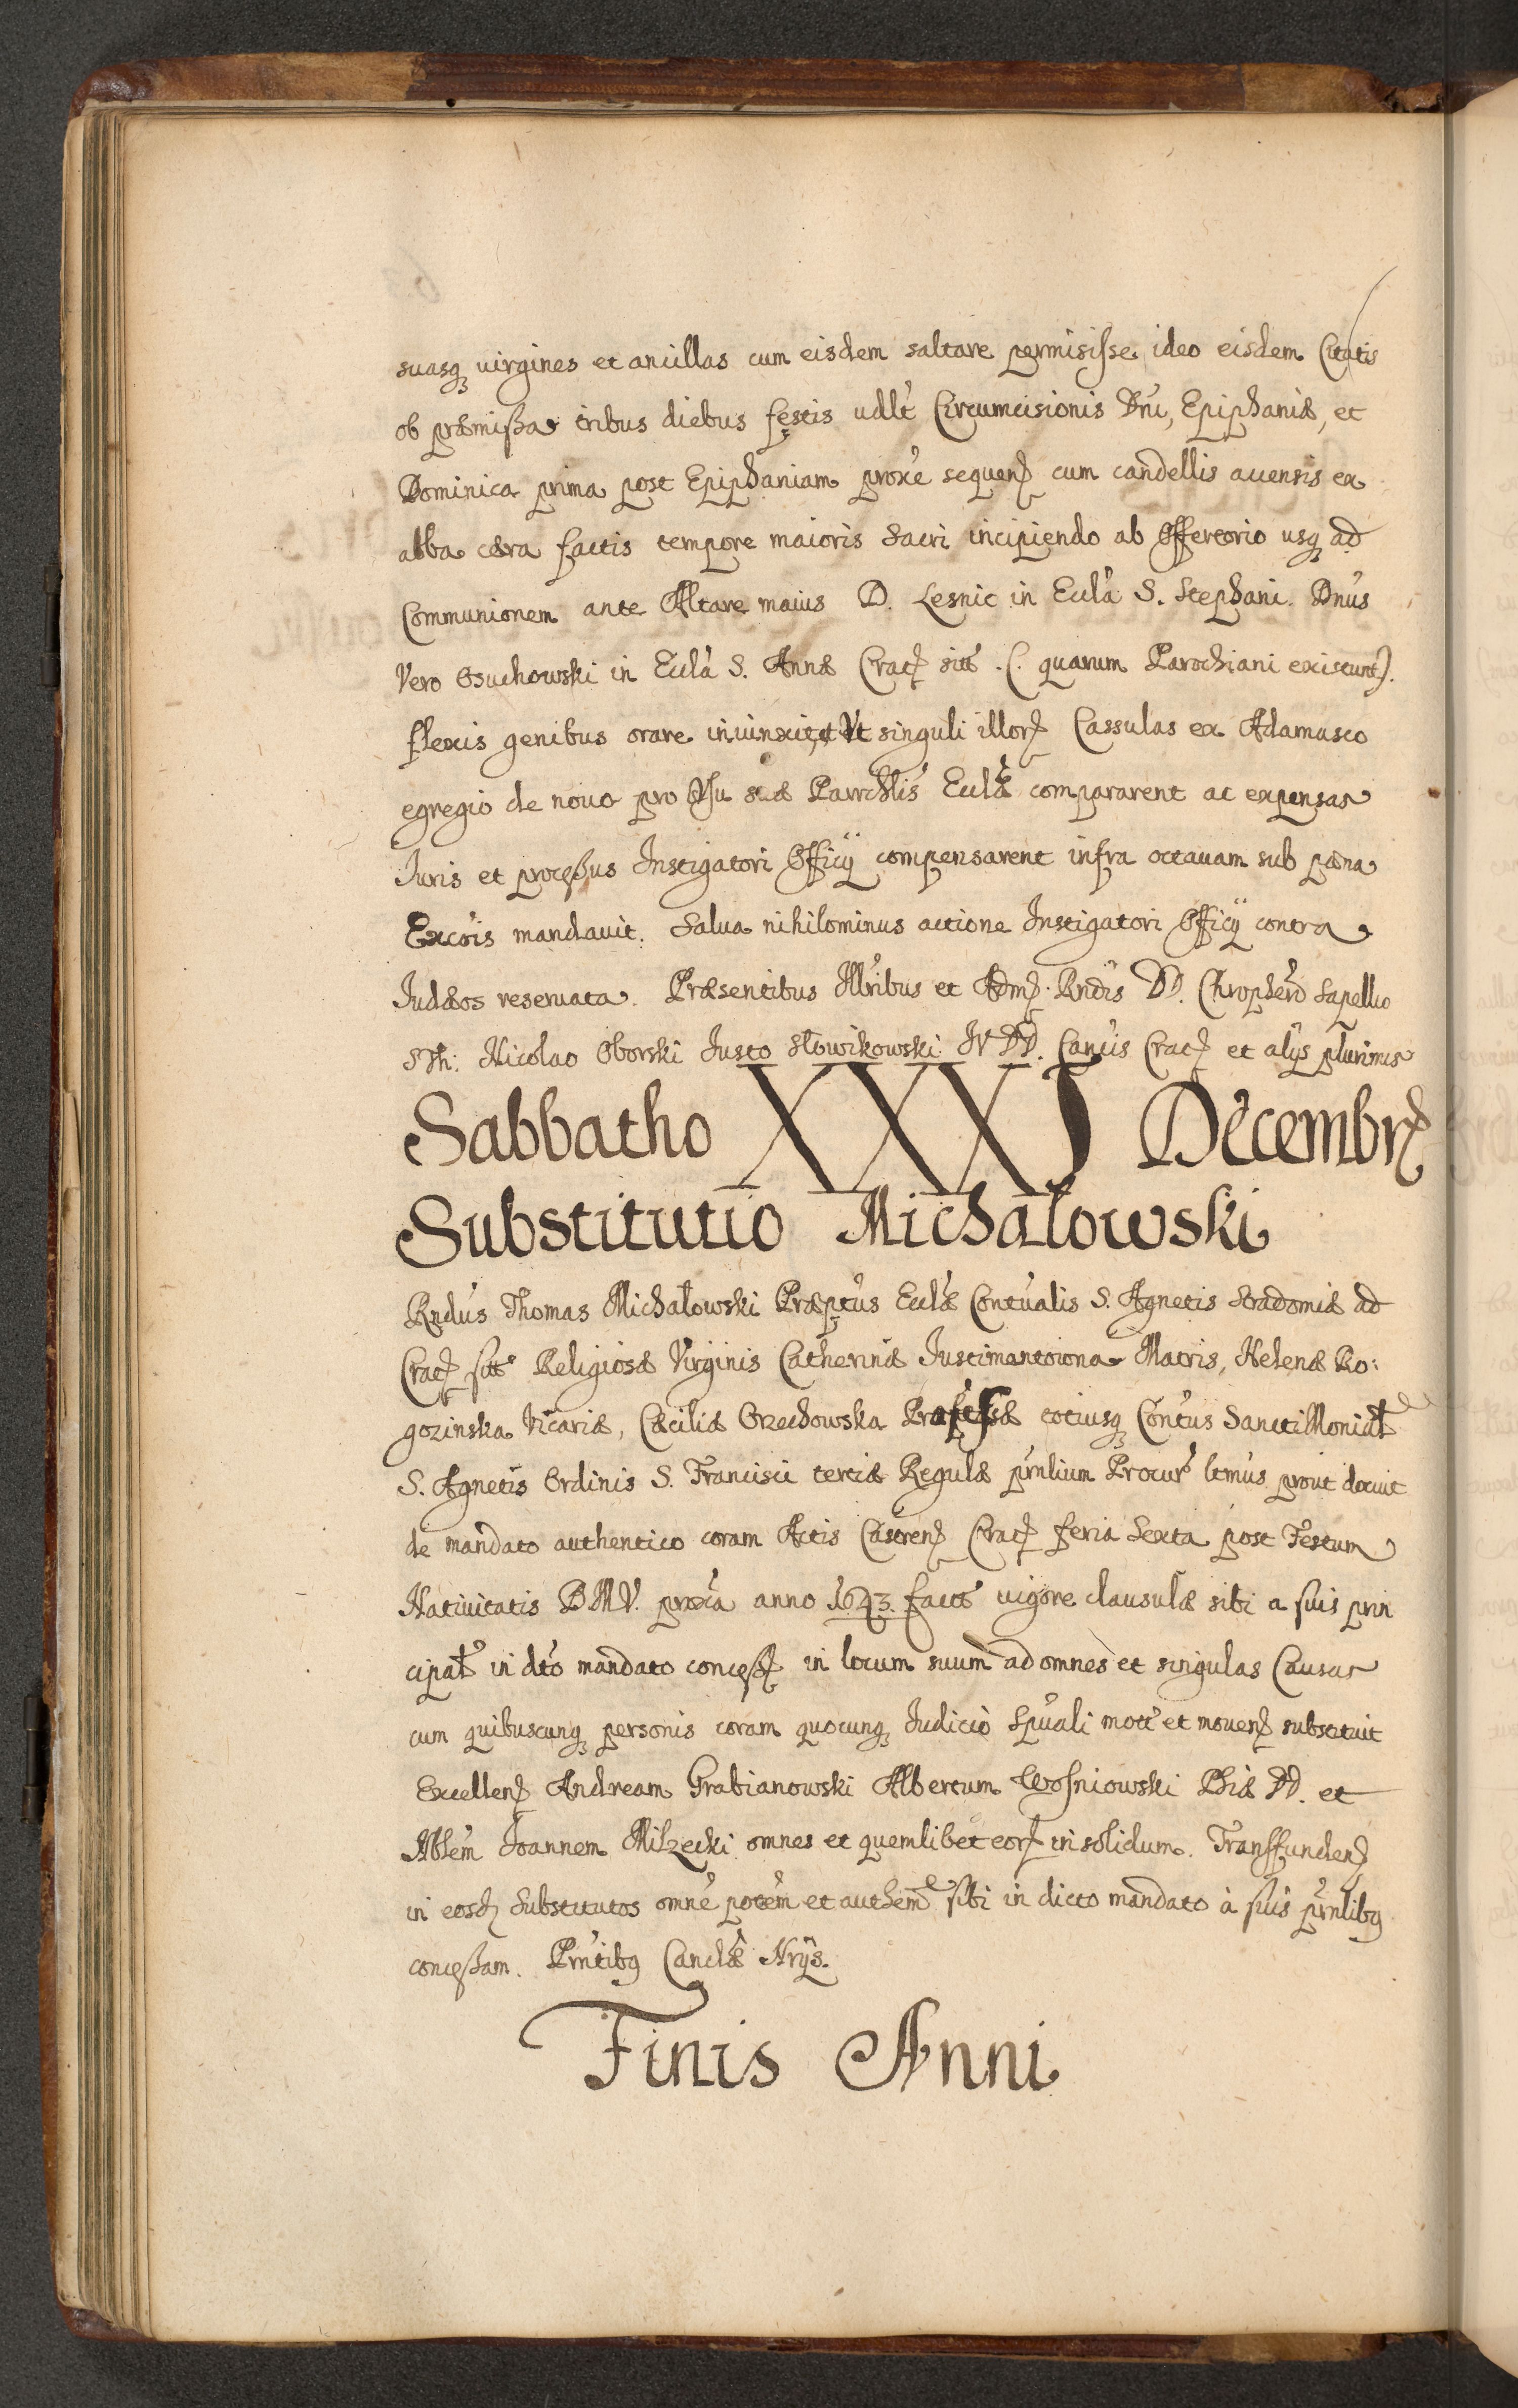 suasq virgines et ancillas cum eisdem saltare permisisse, ideo eisdem Citatis
ob præmissa tribus diebus festis vdlt Circumcisionis Dni, Epiphaniæ, et
Dominica prima post Epiphaniam proxe sequen cum candellis accensis ex
alba cæra factis tempore maioris Sacri incipiendo ab Offertorio usq ad
Communionem ante Altare maius D. Lesnic in Eccla S. Stephani. Dnus
Vero Osuchowski in Eccla S. Annæ Crac sitt (quarum Parochiani existunt).
flexis genibus orare iniunxit, et Vt singuli illor Cassulas ex Adamasco
egregio de nouo pro Vsu suæ Parochlis Ecclæ compararent ac expensas
Iuris et processus Instigatori Officij compensarent infra octauam sub pæna
Excois mandauit. Salua nihilominus actione Instigatori Officij contra
Iudæos reseruata. Præsentibus Illribus et Adm Rndis DD. Chrophero Sapellio
STh: Nicolao Oborski Iusto Słowikowski IVDD. Cancis Crac et alijs plurimis
Sabbatho XXXI Decembr
Substitutio Michałowski
Rndus Thomas Michałowski Præptus Ecclæ Contualis S. Agnetis Stradomiæ ad
Crac sitt Religiosæ Virginis Catherinæ Iustimontowna Matris, Helenæ Ro:
gozinska Vicariæ, Cæciliæ Orzechowska Professæ totiusq Contus SanctiMonial
S. Agnetis Ordinis S. Francisci tertiæ Regulæ prnlium Procur ltmus prout docuit
de mandato authentico coram Actis Castren Crac feria Sexta post Festum
Natiuitatis BMV. proxa anno 1643. factt vigore clausulæ sibi a suis prin
cipal in dto mandato concess in locum suum ad omnes et singulas Causas
cum quibuscunq personis coram quocunq Iudicio Spuali mott et mouen substituit
Excellen Andream Grabianowski Albertum Wosniowski Phiæ DD. et
Nblem Joannem Milzecki omnes et quemlibet eor in solidum. Transfunden
in eosd Substitutos omne potem et authem sibi in dicto mandato à suis prnlibq
concessam. Prntibq Canclæ Nrijs.
Finis Anni